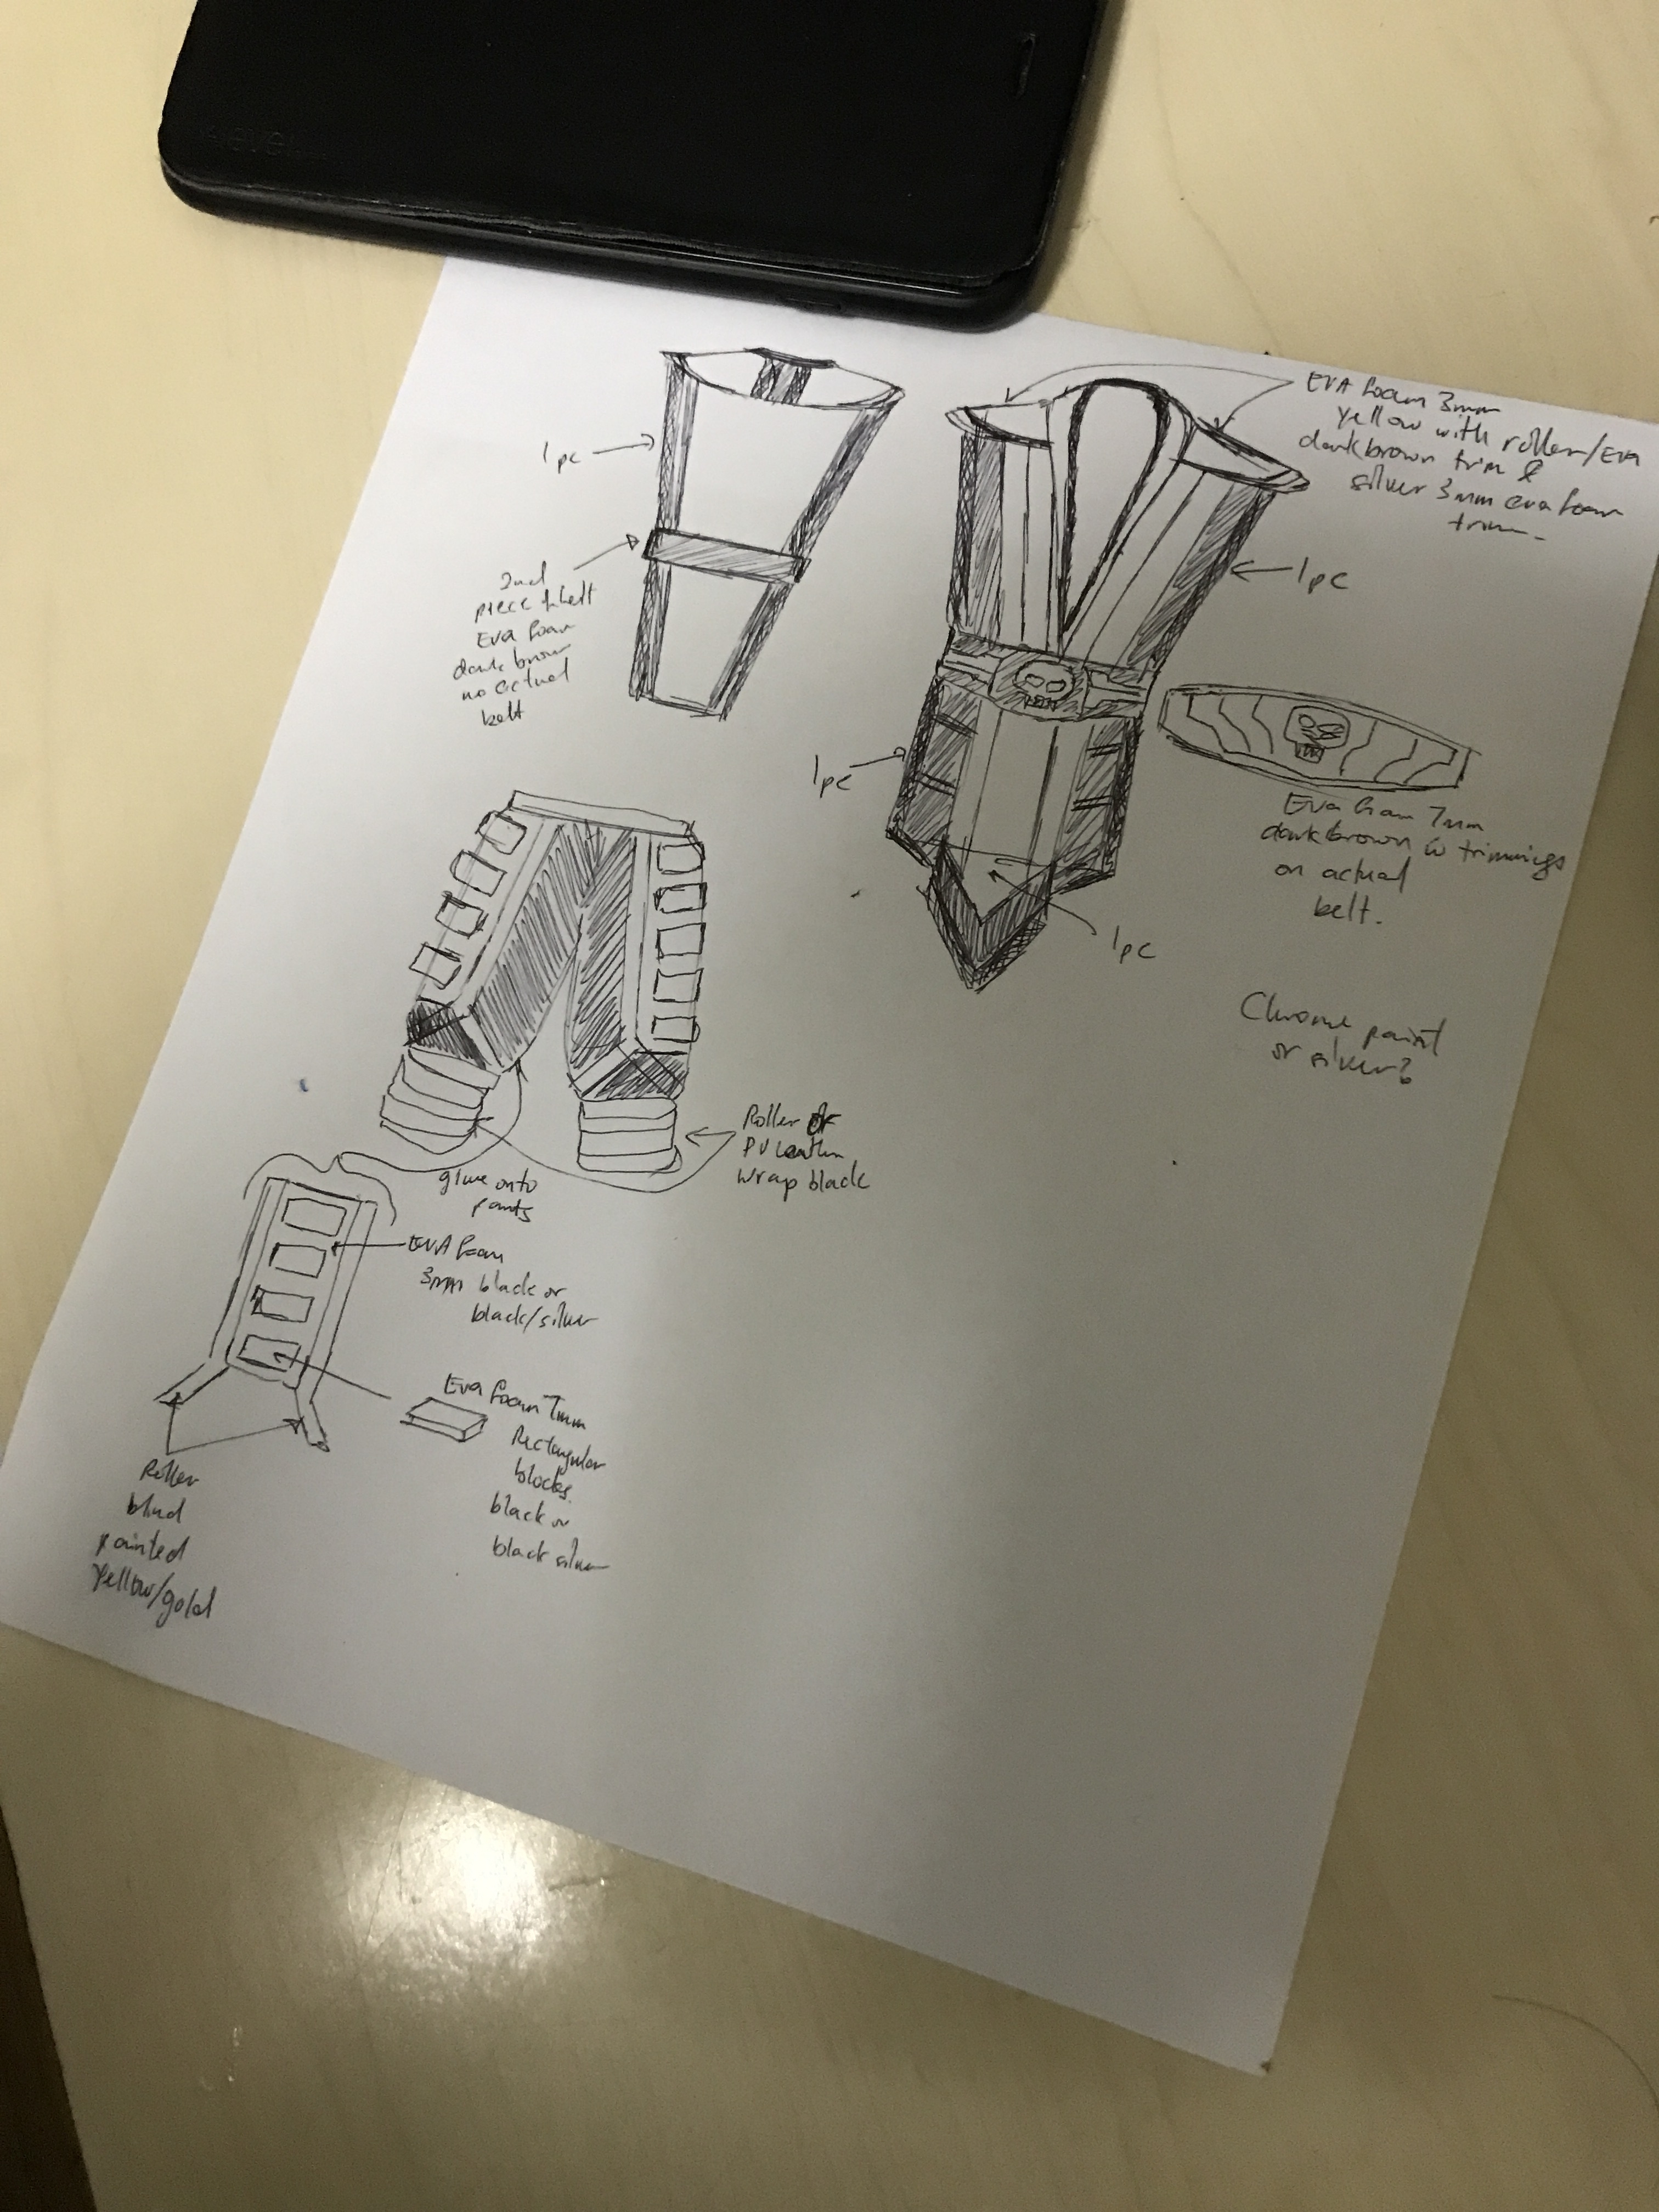 1 pc
2nd
piece
belt
Eva foam
dark brown
no actual
belt
EVA foam 3mm
yellow with roller/EVA
dark brown trim &
silver 3mm eva foam
trim
1 pc
1 pc
1 pc
Eva foam 7mm
dark brown w trimmings
on actual
belt.
Chrome paint
or silver?
Roller or
PU Leather
wrap black
glue onto
pants
EVA foam
3mm black or
black/silver
Eva foam 7mm
Rectangular
blocks.
black or
black silver
Roller
blind
painted
yellow/gold